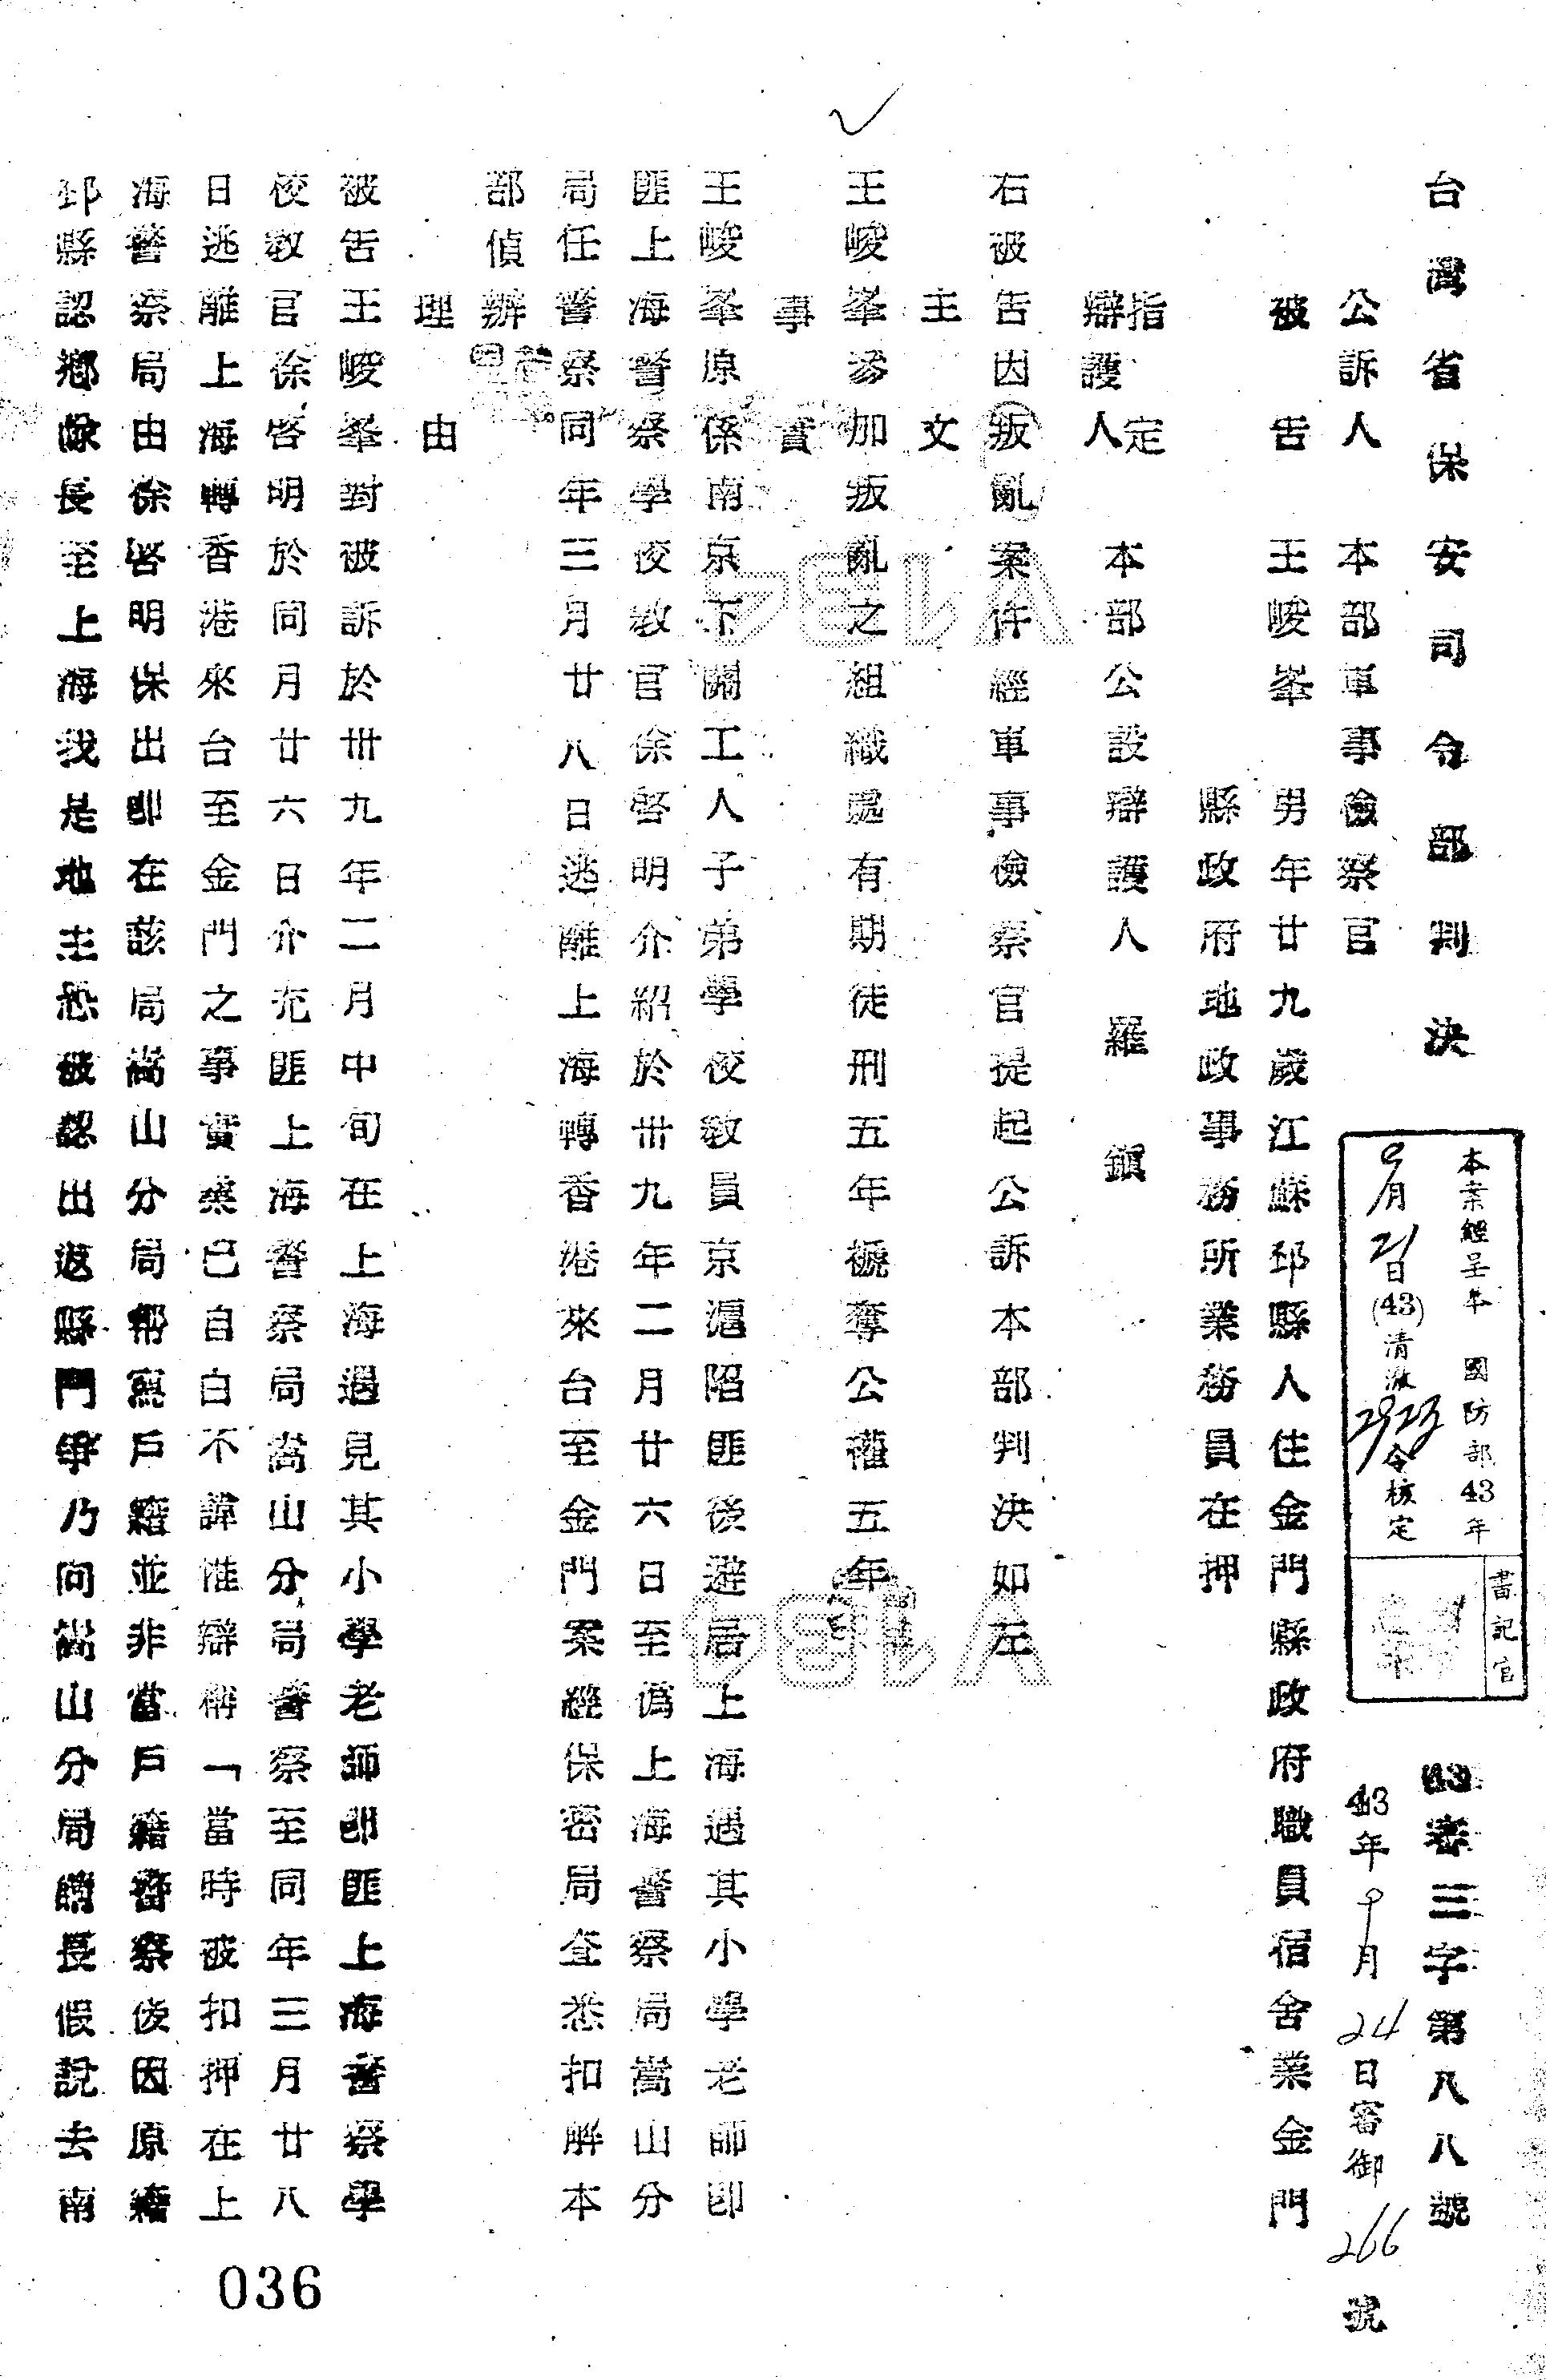 台灣省保安司令部判決
三字第八八號
43年9月24日審御266號
本案經呈奉 國防部43年
9月21日(43)清澈2923令核定
書記官
公訴人 本部軍事檢察官
被告 王峻峯 男年廿九歲江蘇邳縣人住金門縣政府職員宿舍業金門
縣政府地政事務所業務員在押
指定
辯護人 本部公設辯護人 羅鎮
右被告因叛亂案件經軍事檢察官提起公訴本部判決如左
主文
王峻峯參加叛亂之組織處有期徒刑五年褫奪公權五年
事實
王峻峯原係南京下關工人子弟學校教員京滬陷匪後避居上海遇其小學老師卽
匪上海警察學校教官徐啓明介紹於卅九年二月廿六日至僞上海警察局嵩山分
局任警察同年三月廿八日逃離上海轉香港來台至金門案經保密局查悉扣解本
部偵辦
理由
被告王峻峯對被訴於卅九年二月中旬在上海遇見其小學老師卽匪上海警察學
校教官徐啓明於同月廿六日介充匪上海警察局嵩山分局警察至同年三月廿八
日逃離上海轉香港來台至金門之事實業已自白不諱惟辯稱「當時被扣押在上
海警察局由徐啓明保出卽在該局嵩山分局幫寫戶籍並非當戶籍警察後因原籍
邳縣認鄉隊長至上海我是地主恐被認出返縣鬥爭乃向嵩山分局長假說去南
036
A184
A184